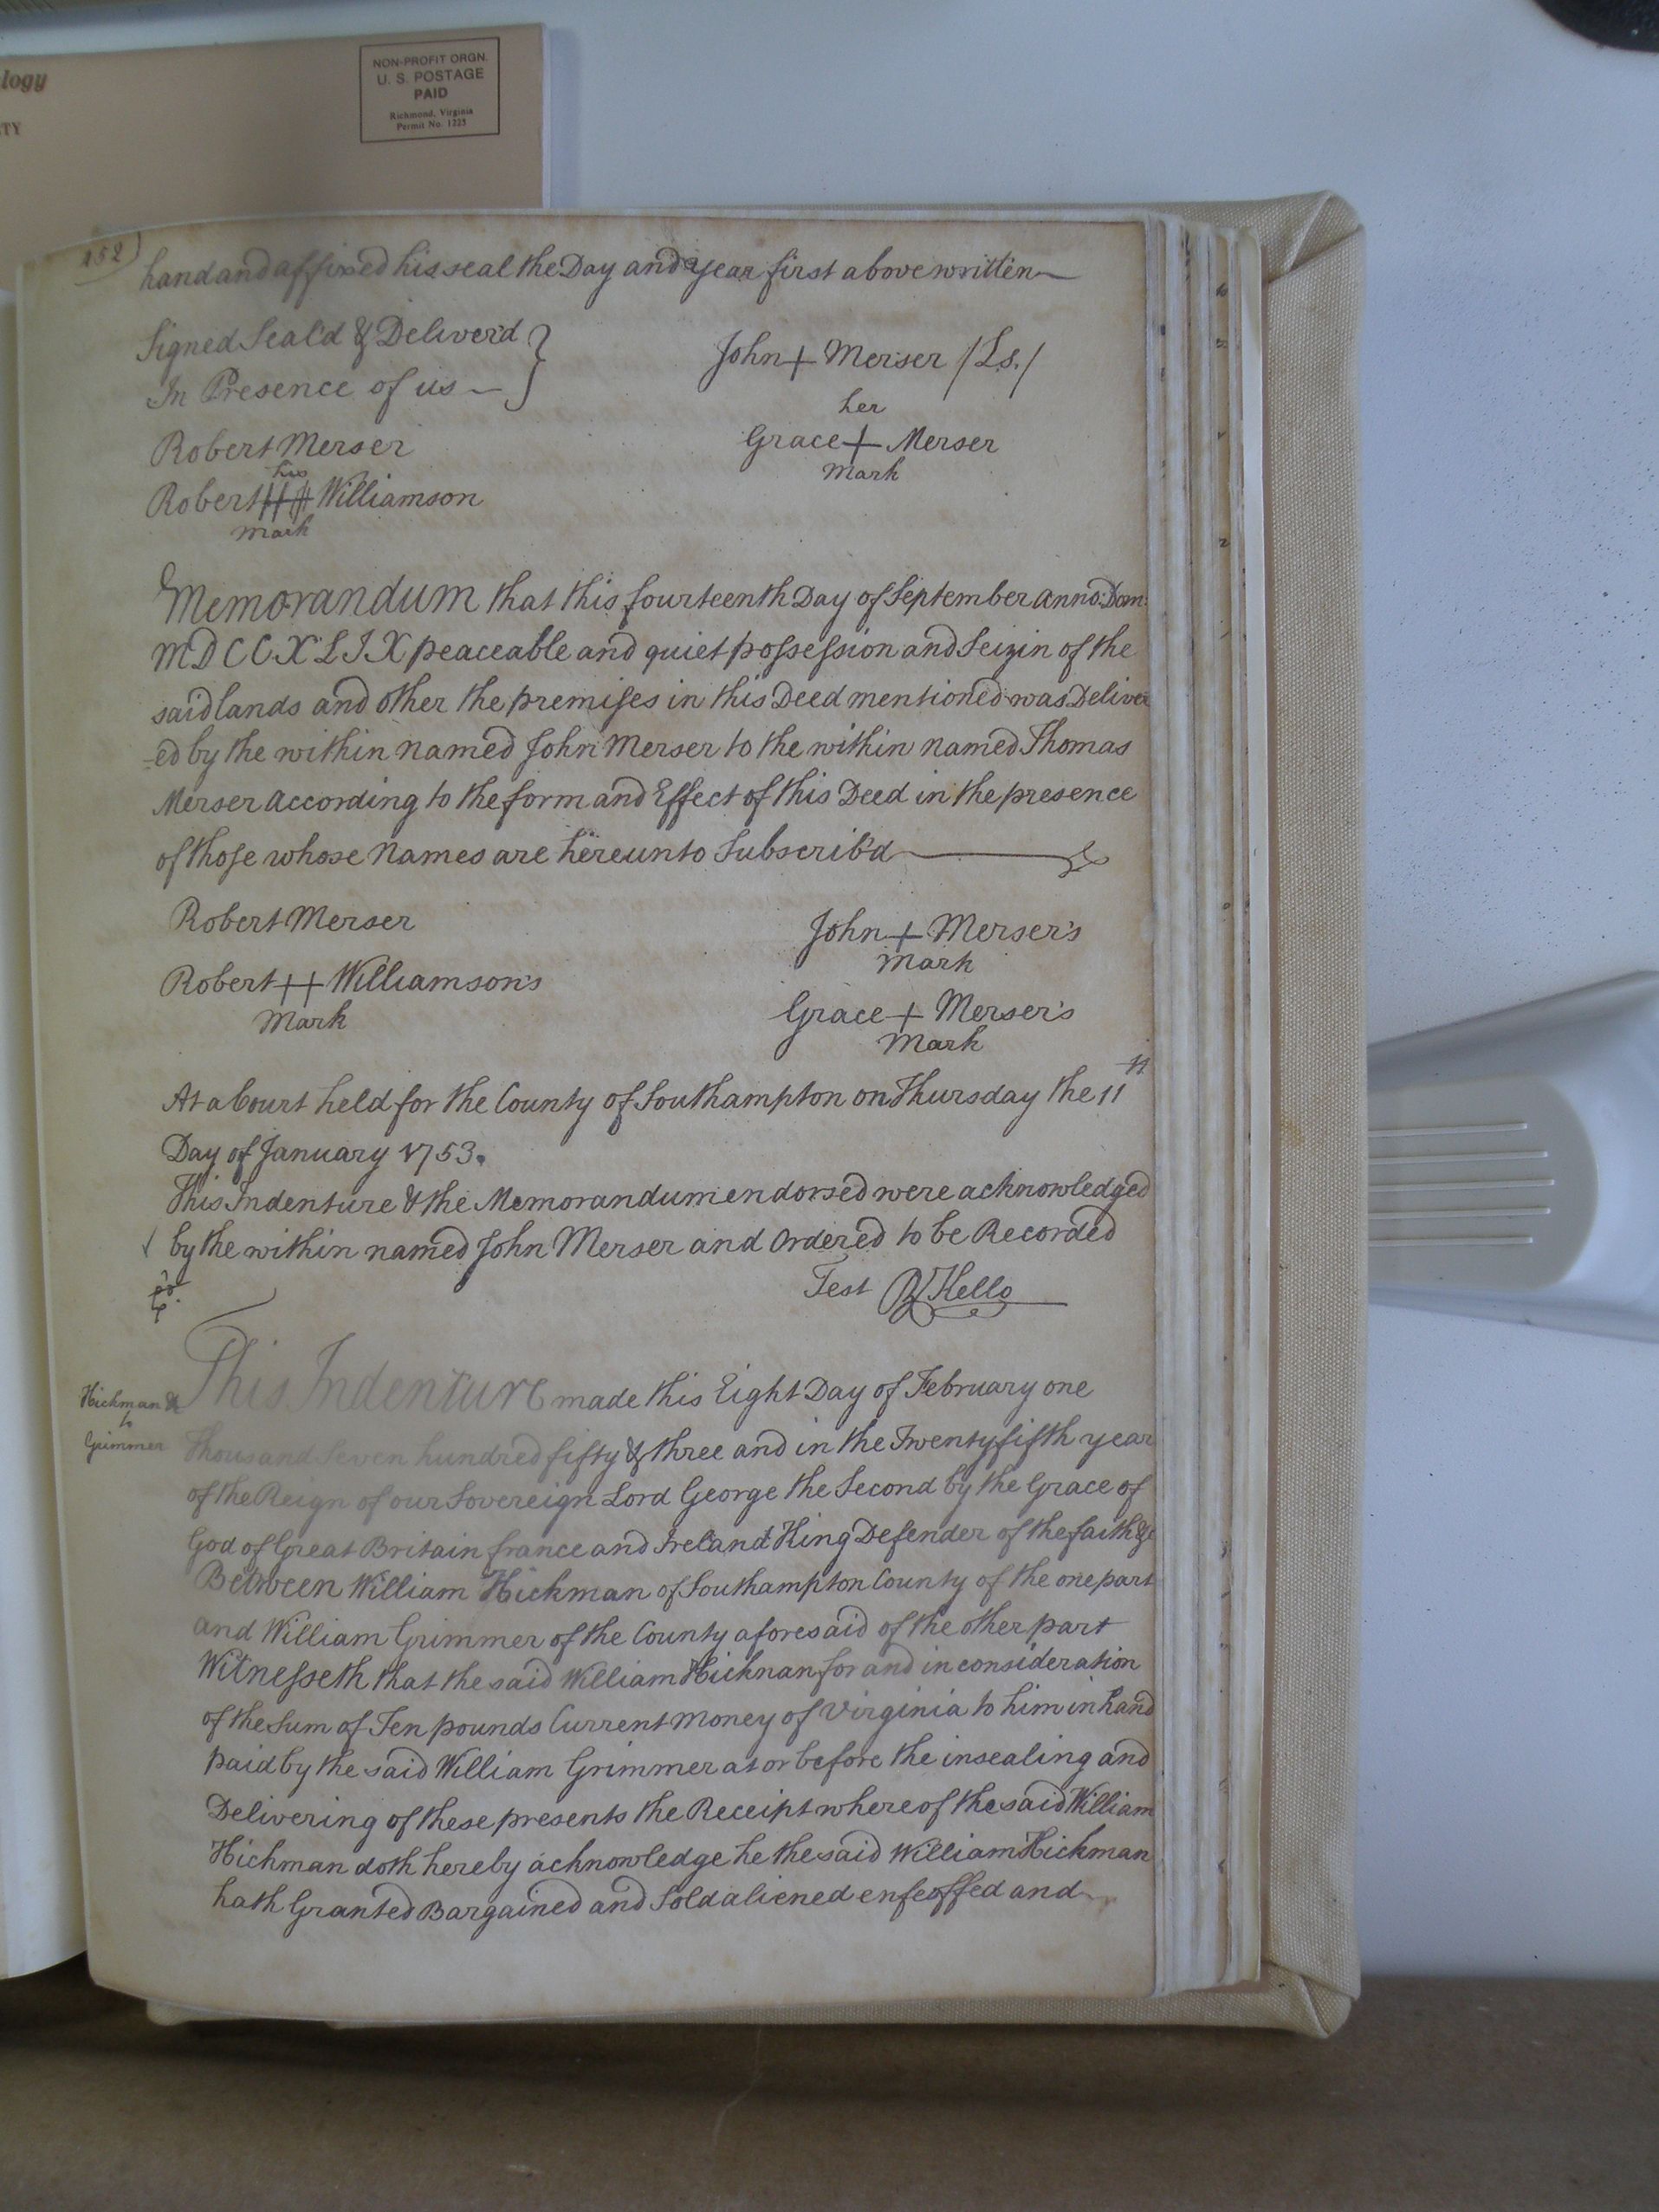 logy
TY
NON-PROFIT ORGN.
U. S. POSTAGE
PAID
Richmond, Virginia
Permit No. 1225
252)
hand and affixed his seal the Day and Year first above written
Signed Seal'd & Deliver'd
In Presence of us
John + Merser /Ls./
her
Grace + Merser
mark
Robert Merser
his
Robert Williamson
mark
Memorandum that this fourteenth Day of September anno: Dom:
MDCCXLIX peaceable and quiet possession and Seizin of the
said lands and other the premises in this Deed mentioned was Deliver
-ed by the within named John Merser to the within named Thomas
Merser according to the form and Effect of this Deed in the presence
of those whose Names are hereunto Subscrib'd
Robert Merser
John + Merser's
Mark
Robert ++ Williamson's
Mark
Grace + Merser's
Mark
At a Court held for the County of Southampton on Thursday the 11th
Day of January 1753.
This Indenture & the Memorandum endorsed were acknowledged
by the within named John Merser and Ordered to be Recorded
Test R Kello
Hickman &
to
Grimmer
This Indenture made this Eight Day of February one
thousand Seven hundred fifty & three and in the Twenty fifth year
of the Reign of our Sovereign Lord George the Second by the Grace of
God of Great Britain france and Ireland King Defender of the faith &c
Between William Hickman of Southampton County of the one part
and William Grimmer of the County aforesaid of the other part
Witnesseth that the said William Hickman for and in consideration
of the Sum of Ten pounds Current money of Virginia to him in hand
paid by the said William Grimmer at or before the insealing and
Delivering of these presents the Receipt whereof the said William
Hickman doth hereby acknowledge he the said William Hickman
hath Granted Bargained and Sold aliened enfeoffed and